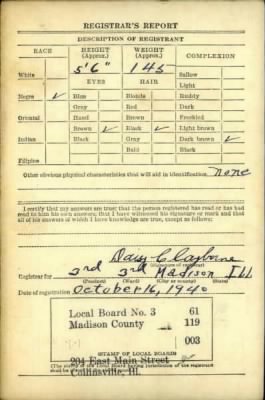 REGISTRAR'S REPORT
DESCRIPTION OF REGISTRANT
RACE HEIGHT (Approx.) WEIGHT (Approx.) COMPLEXION
5'6" 145
White Sallow
EYES HAIR Light
Negro ✓ Blue Blonde Ruddy
Gray Red Dark
Oriental Hazel Brown Freckled
Brown ✓ Black ✓ Light brown
Indian Black Gray Dark brown ✓
Bald Black
Filipino
Other obvious physical characteristics that will aid in identification none
I certify that my answers are true; that the person registered has read or has had
read to him his own answers; that I have witnessed his signature or mark and that
all of his answers of which I have knowledge are true, except as follows:
Registrar for 3rd 3rd Madison Ill
(Precinct) (Ward) (City or county) (State)
Date of registration October 16, 1940
Local Board No. 3 61
Madison County 119
003
STAMP OF LOCAL BOARD
204 East Main Street
Collinsville, Ill.